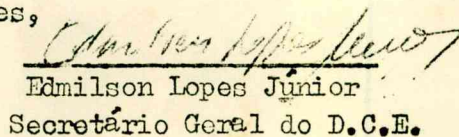 es,
Edmilson Lopes Júnior
Edmilson Lopes Júnior
Secretário Geral do D.C.E.